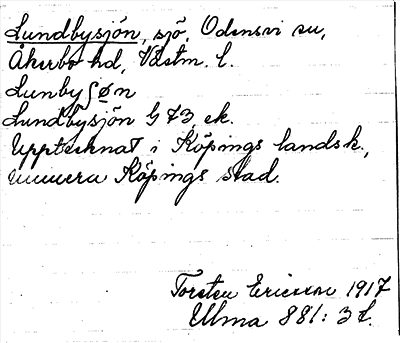 Lundbysjön, sjö, Odensvi sn,
Åkerbo hd, Västm. l.
Lunbyʃøn
Lundbysjön G 73 ek.
Upptecknat i Köpings landsk.,
numera Köpings stad.
Torsten Ericsson 1917
Ulma 881: 3 t.